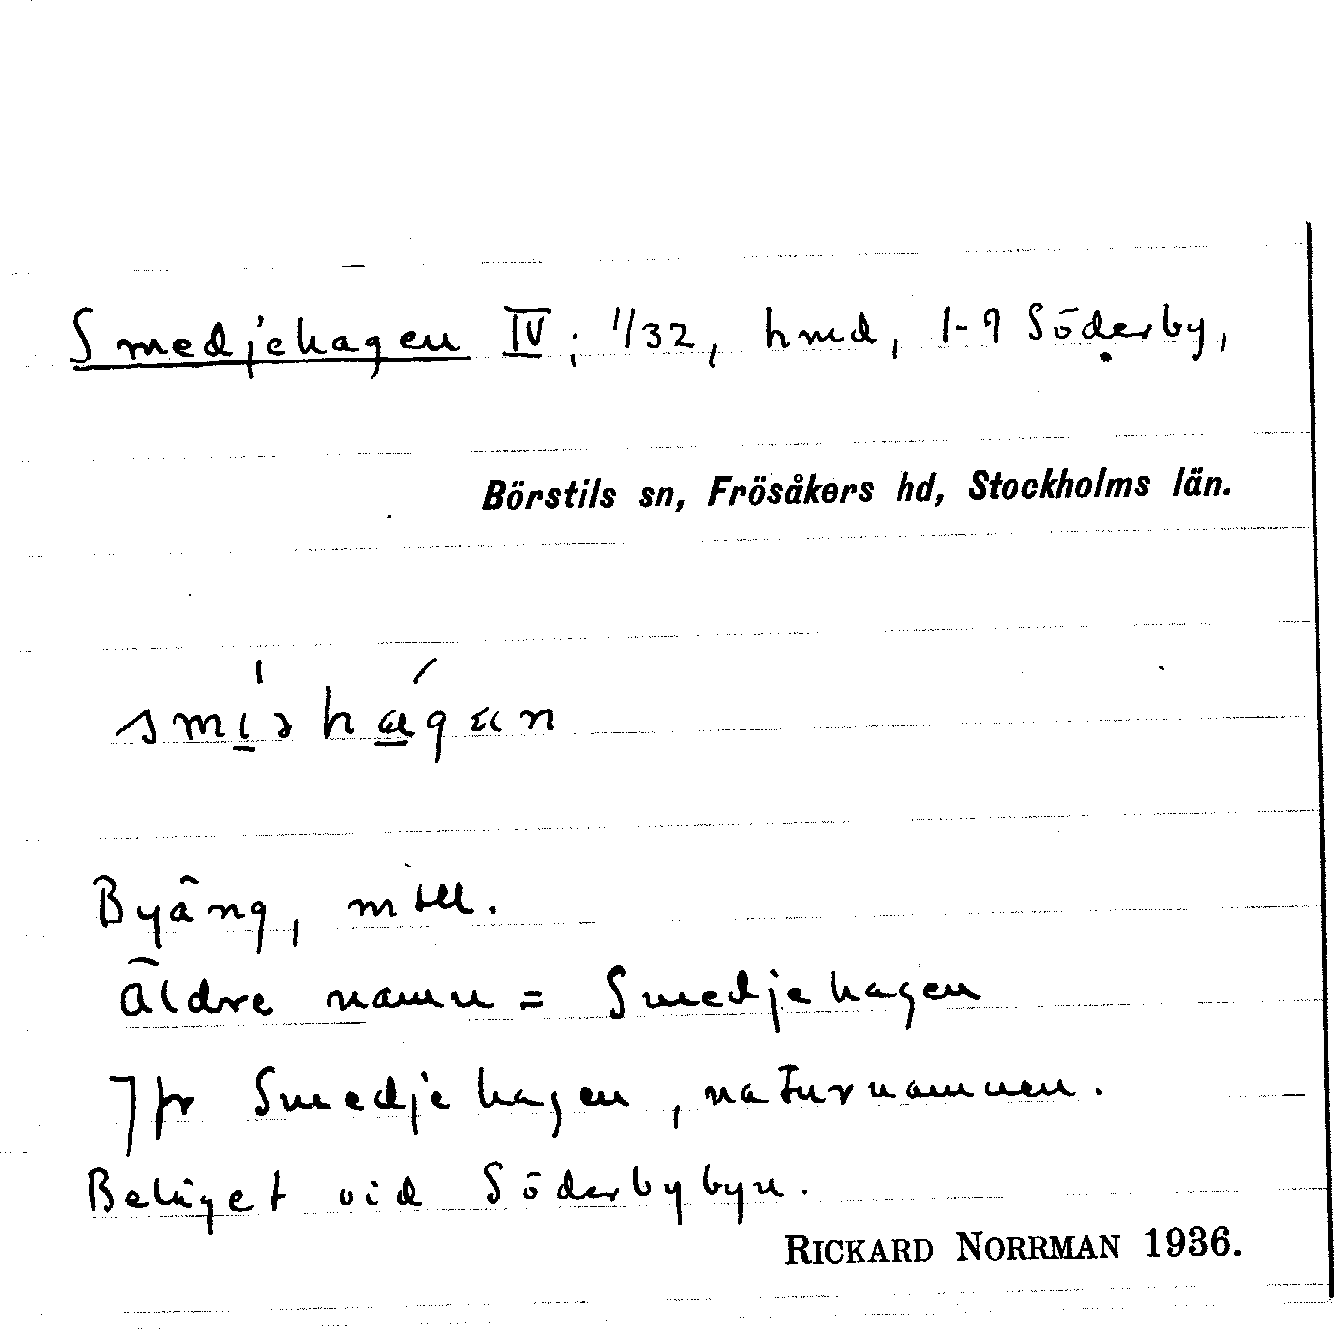 Smedjehagen IV; 1/32, hmd, 1-9 Söderby,
Börstils sn, Frösåkers hd, Stockholms län.
smiəhagan
Byäng,
Äldre namn = Smedjehagen
Jfr Smedjehagen, naturnamnen.
Beläget vid Söderbybyn.
RICKARD NORRMAN 1936.